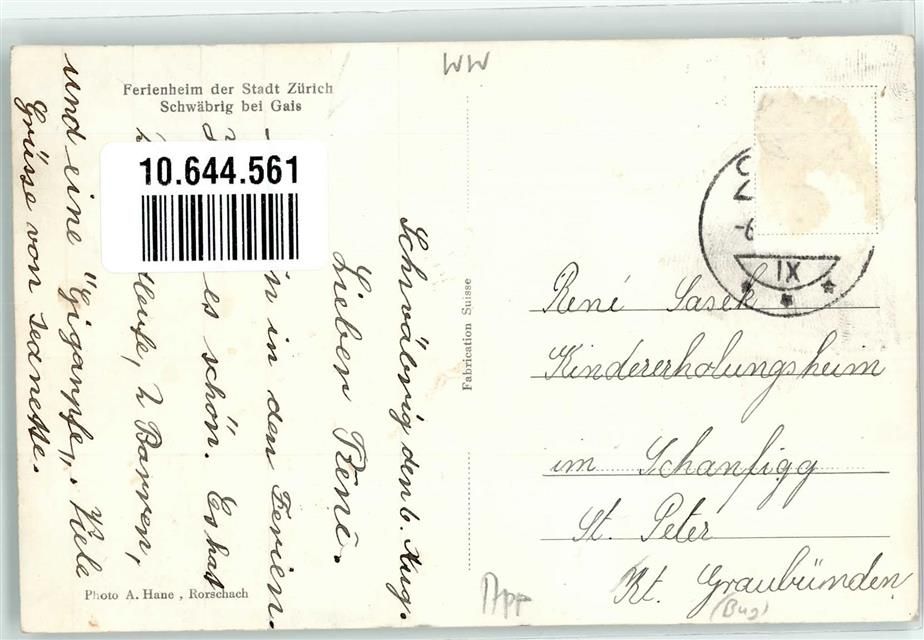 WW
Ferienheim der Stadt Zürich
Schwäbrig bei Gais
10.644.561
Schwäbrig den 6. Aug.
Lieber René.
in in den Ferien.
es schön. Es hat
2 Barren,
und eine "Gigampfe„. Viele
Grüsse von Jeanette.
Photo A. Hane, Rorschach
Fabrication Suisse
IX
René Sasek
Kindererholungsheim
im Schanfigg
St. Peter
Kt. Graubünden
App
(Bug)